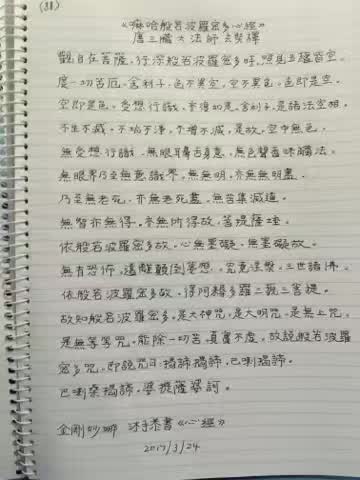 (81)
《嘛哈般若波羅蜜多心經》
唐三藏大法師玄奘譯
觀自在菩薩，行深般若波羅蜜多時，照見五蘊皆空。
度一切苦厄。舍利子，色不異空，空不異色，色即是空，
空即是色。受想行識，亦復如是，舍利子，是諸法空相，
不生不滅，不垢不淨，不增不減，是故，空中無色。
無受想行識，無眼耳鼻舌身意，無色聲香味觸法。
無眼界乃至無意識界，無無明，亦無無明盡。
乃至無老死，亦無老死盡，無苦集滅道。
無智亦無得，亦無所得故，菩提薩埵。
依般若波羅蜜多故，心無罣礙，無罣礙故。
無有恐怖，遠離顛倒夢想，究竟涅槃，三世諸佛。
依般若波羅蜜多故，得阿耨多羅三藐三菩提。
故知般若波羅蜜多，是大神咒，是大明咒，是無上咒。
是無等等咒，能除一切苦，真實不虛，故說般若波羅
蜜多咒，即說咒曰：揭諦揭諦，巴喇揭諦。
巴喇桑揭諦，婆提薩婆訶。
金剛妙娜 沐手恭書《心經》
2017/3/24